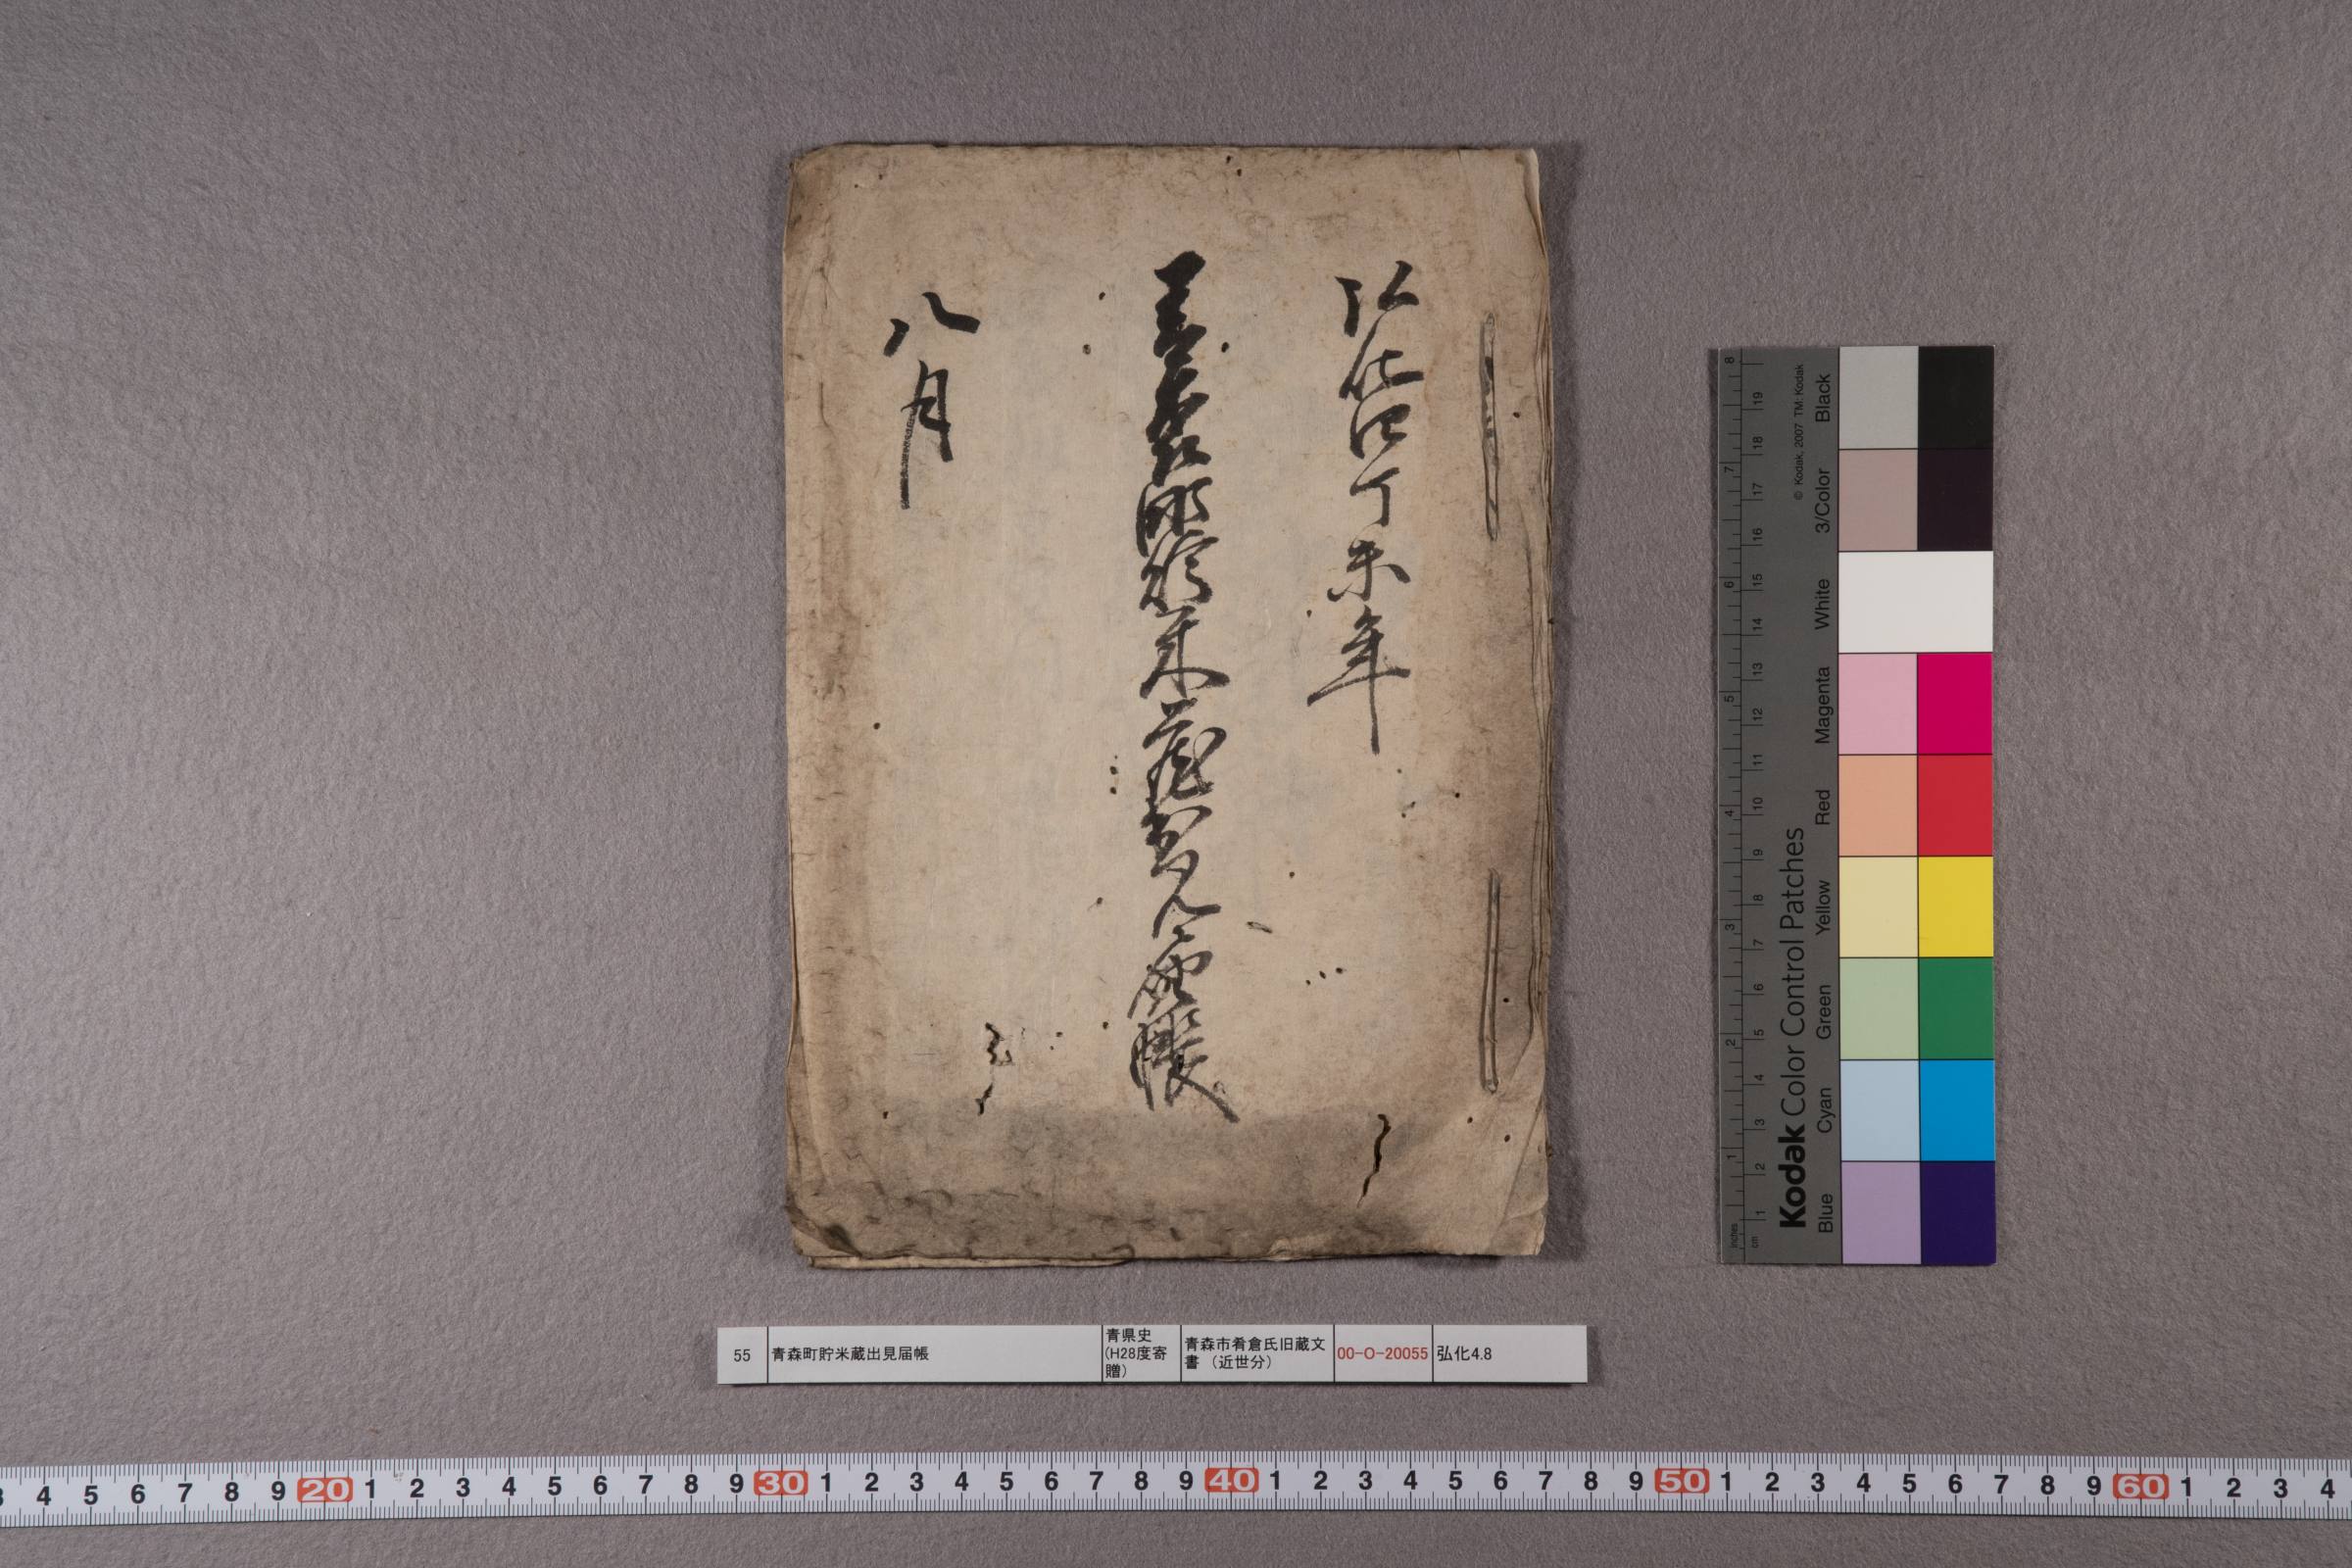 弘化四丁未年
青森町貯米蔵出見届帳
八月
55 青森町貯米蔵出見届帳 青県史(H28度寄贈) 青森市肴倉氏旧蔵文書（近世分） 00-O-20055 弘化4.8
Kodak Color Control Patches
© Kodak, 2007 TM: Kodak
Blue Cyan Green Yellow Red Magenta White 3/Color Black
inches 1 2 3 4 5 6 7 8
cm 1 2 3 4 5 6 7 8 9 10 11 12 13 14 15 16 17 18 19
3 4 5 6 7 8 9 20 1 2 3 4 5 6 7 8 9 30 1 2 3 4 5 6 7 8 9 40 1 2 3 4 5 6 7 8 9 50 1 2 3 4 5 6 7 8 9 60 1 2 3 4